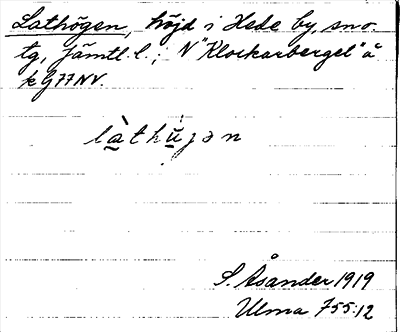 Lathögen, höjd i Hede by, sno.
tg, Jämtl. l.; N "Klockarberget" å
k G77NV.
làthùgən
S. Åsander 1919
Ulma 755:12